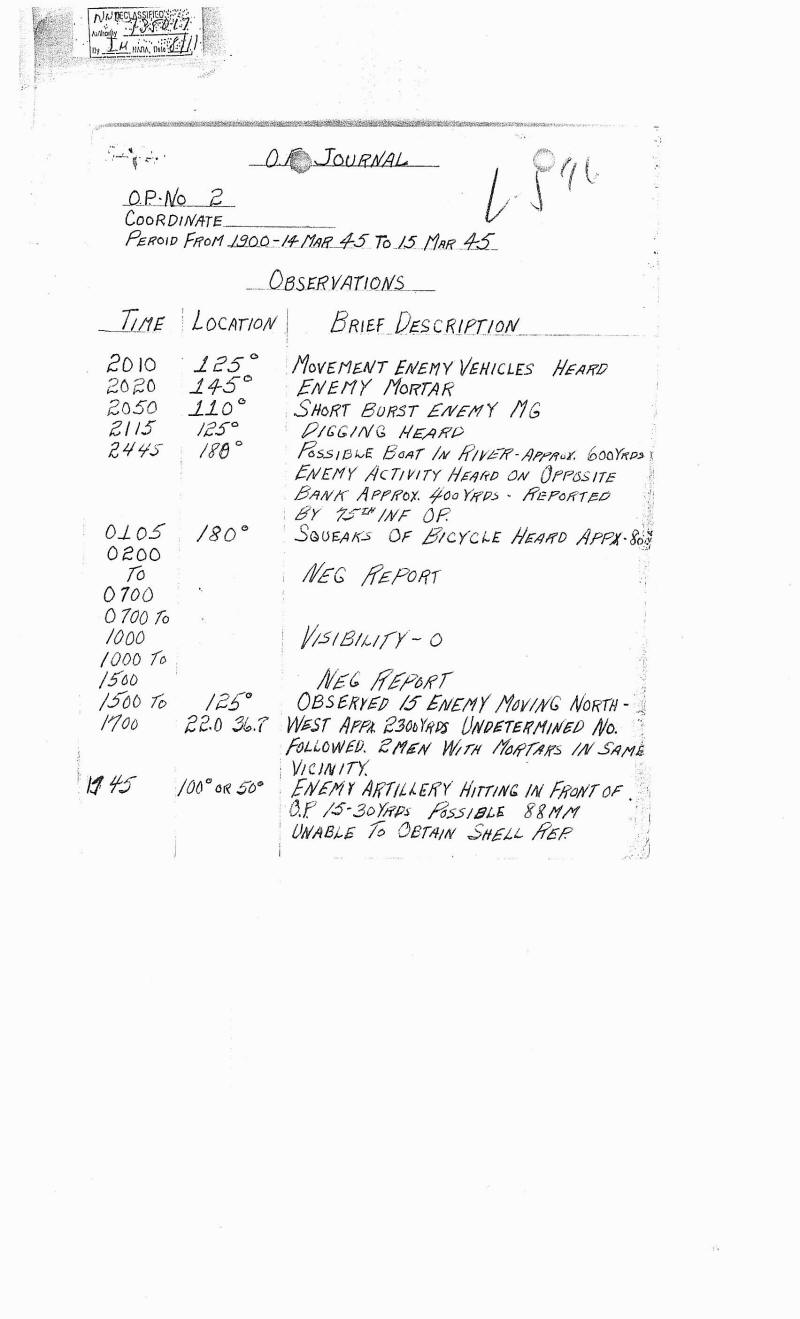 DECLASSIFIED
Authority 735017
By IM NARA, Date 8/11
O.P. JOURNAL
O.P. No 2
COORDINATE
PEROID FROM 1900-14 MAR 45 TO 15 MAR 45
OBSERVATIONS
TIME LOCATION BRIEF DESCRIPTION
2010 125° MOVEMENT ENEMY VEHICLES HEARD
2020 145° ENEMY MORTAR
2050 110° SHORT BURST ENEMY MG
2115 125° DIGGING HEARD
2445 180° POSSIBLE BOAT IN RIVER-APPROX. 600YRDS
ENEMY ACTIVITY HEARD ON OPPOSITE
BANK APPROX. 400YRDS - REPORTED
BY 75TH INF OP.
0105 180° SQUEAKS OF BICYCLE HEARD APPX-
0200
TO NEG REPORT
0700
0700 TO
1000 VISIBILITY - 0
1000 TO
1500 NEG REPORT
1500 TO 125° OBSERVED 15 ENEMY MOVING NORTH-
1700 22.0 36.7 WEST APPX. 2300YRDS UNDETERMINED NO.
FOLLOWED. 2 MEN WITH MORTARS IN SAME
VICINITY.
1945 100° OR 50° ENEMY ARTILLERY HITTING IN FRONT OF
O.P. 15-30YRDS POSSIBLE 88MM
UNABLE TO OBTAIN SHELL REP.